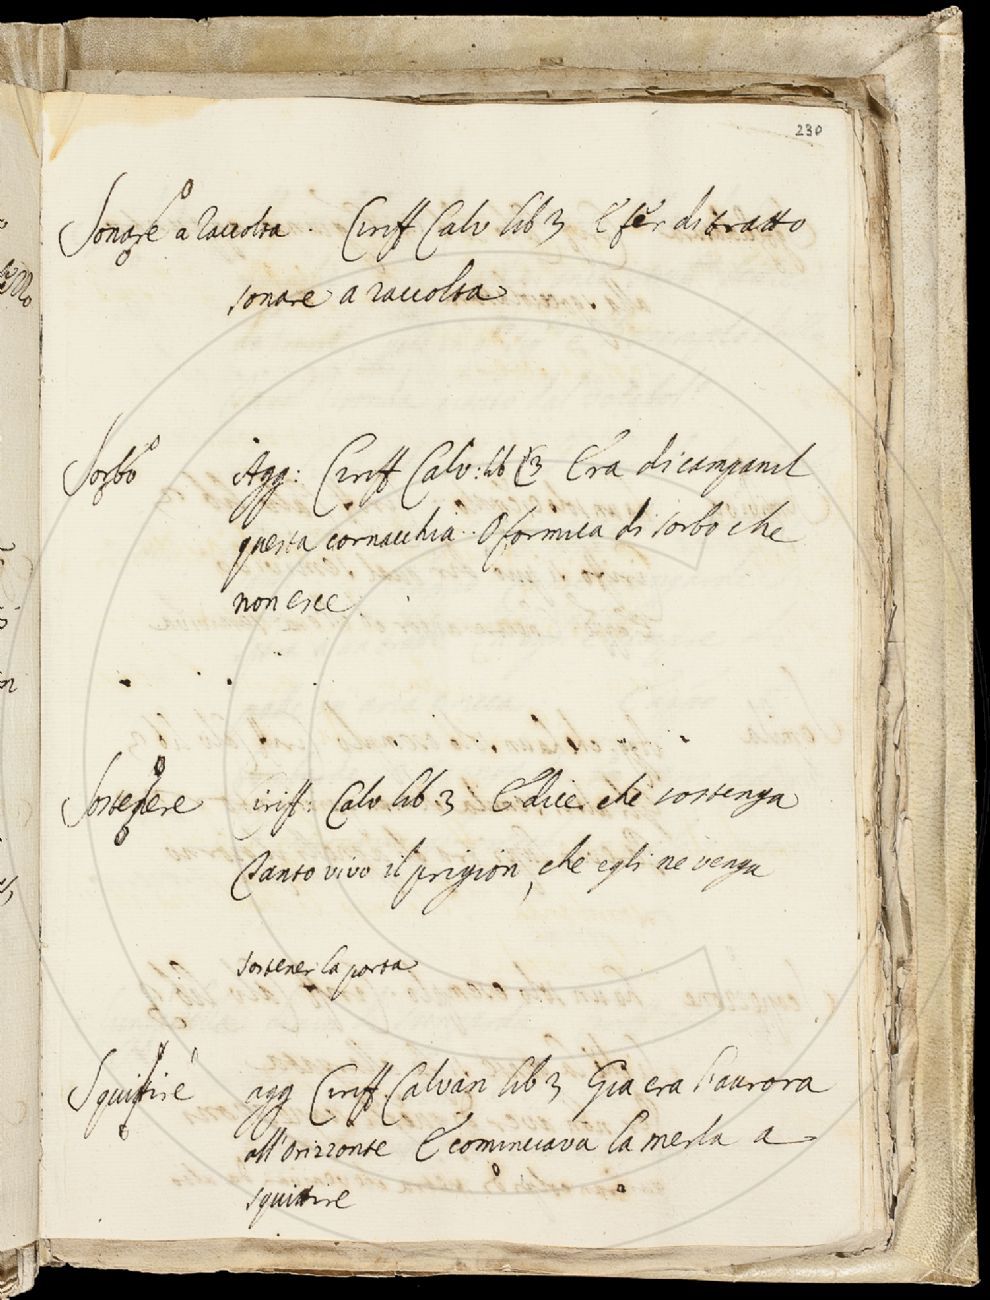 230
Sonare a raccolta. Ciriff Calv lib 3 E fer di tratto
sonare a raccolta
Sorbo Agg: Ciriff Calv: lib 3 Era di campanil
questa cornacchia. O formica di sorbo che
non esce
Sostenere Ciriff: Calv lib. 3 E dice, che sostenga
Tanto vivo il prigion, che egli ne venga
sostener la porta
Squittire agg Ciriff Calvan lib 3 Gia era l'aurora
all'orizzonte E cominciava la merla a
squittire